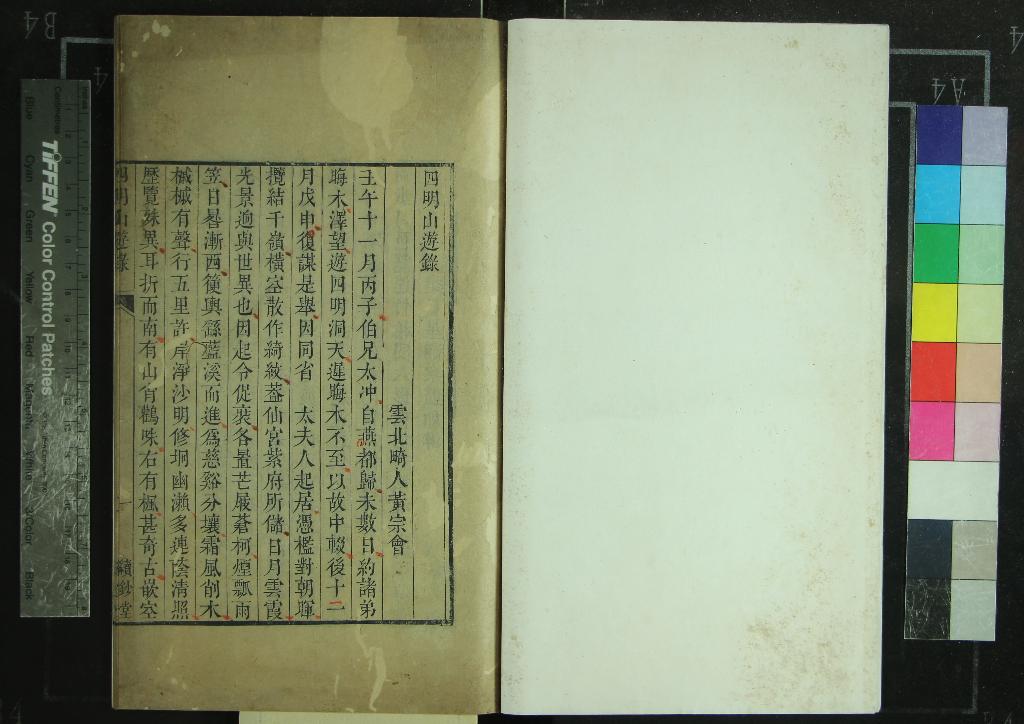 四明山遊錄
雲北畸人黃宗會
壬午十一月丙子伯兄太冲自燕都歸未數日約諸弟
晦木澤望遊四明洞天遲晦木不至以故中輟後十二
月戊申復謀是舉因同省 太夫人起居憑檻對朝暉
攬結千嶺橫空散作綺紋葢仙宮紫府所儲日月雲霞
光景逈與世異也因起令促裝各置芒屩蒼柯煙瓢雨
笠日晷漸西籃輿繇藍溪而進爲慈谿分壤霜風削木
槭槭有聲行五里許岸淨沙明修坰幽瀨多連陰清照
歷覽殊異耳折而南有山有鸛咮右有楓甚奇古嵌空
四明山遊錄
一
續鈔堂
TIFFEN Color Control Patches
Blue Cyan Green Yellow Red Magenta White 3/Color Black
Centimetres
A4
B4